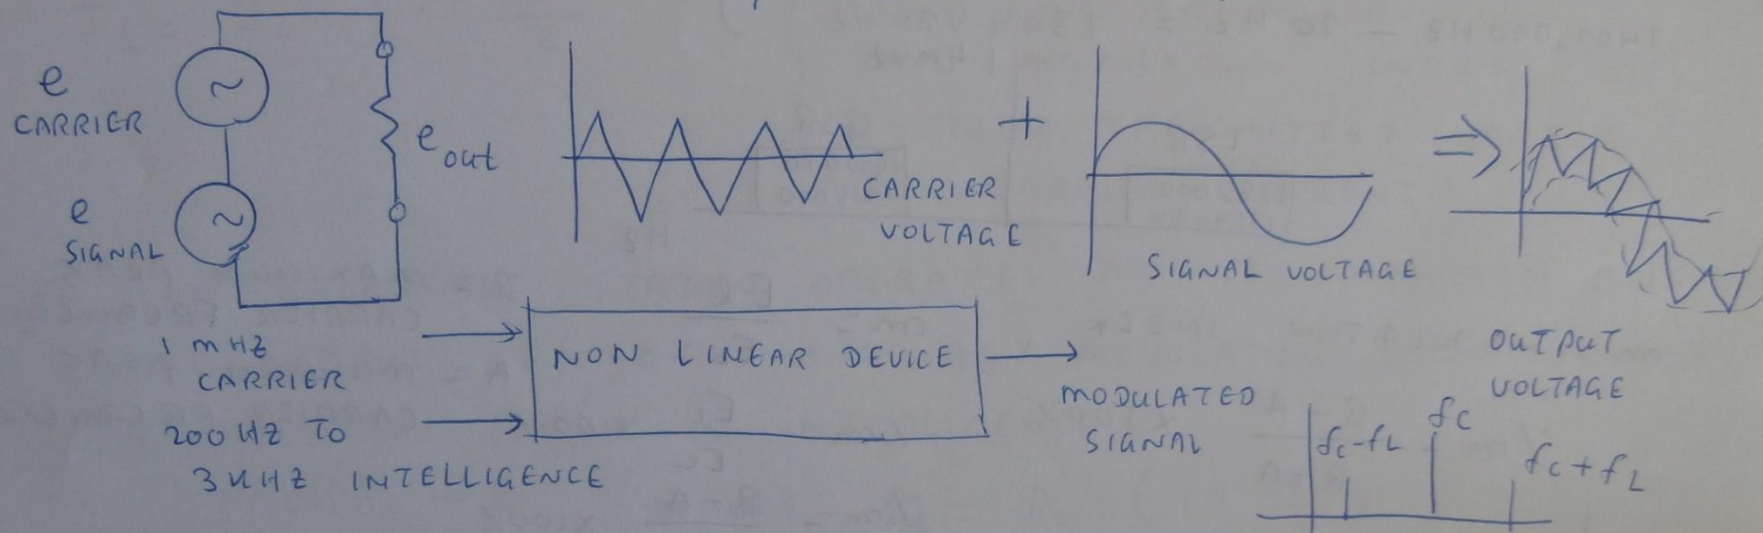 e
CARRIER
e out
e
SIGNAL
+
CARRIER
VOLTAGE
SIGNAL VOLTAGE
⇒
OUTPUT
VOLTAGE
1 mHZ
CARRIER
200 HZ TO
3 KHZ INTELLIGENCE
NON LINEAR DEVICE
MODULATED
SIGNAL
fc-fL
fc
fc+fL